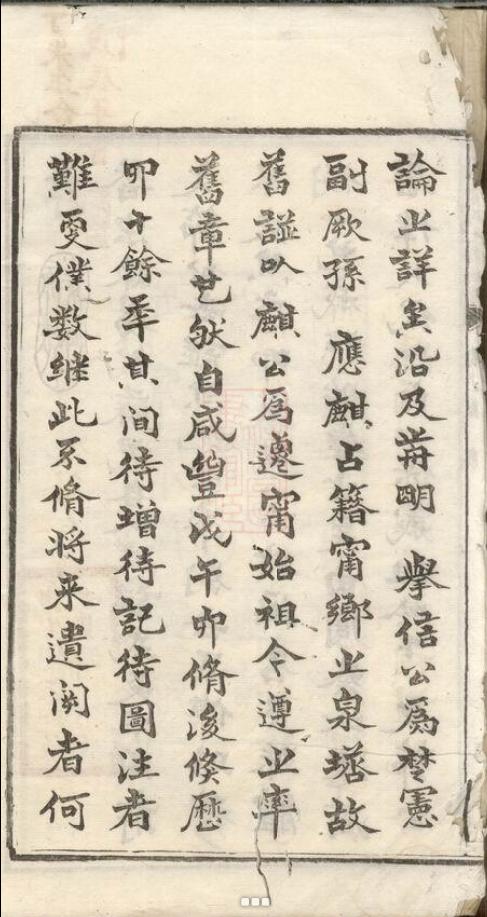 論之詳矣沿及前明 舉信公爲楚憲
副厥孫 應麒占籍甯鄉之泉塘故
舊譜以麒公爲遷甯始祖今遵之率
舊章也狀自咸豐戊午卯脩後倏歷
卯十餘年其间待增待記待圖注者
難更僕数继此不脩將来遺闕者何